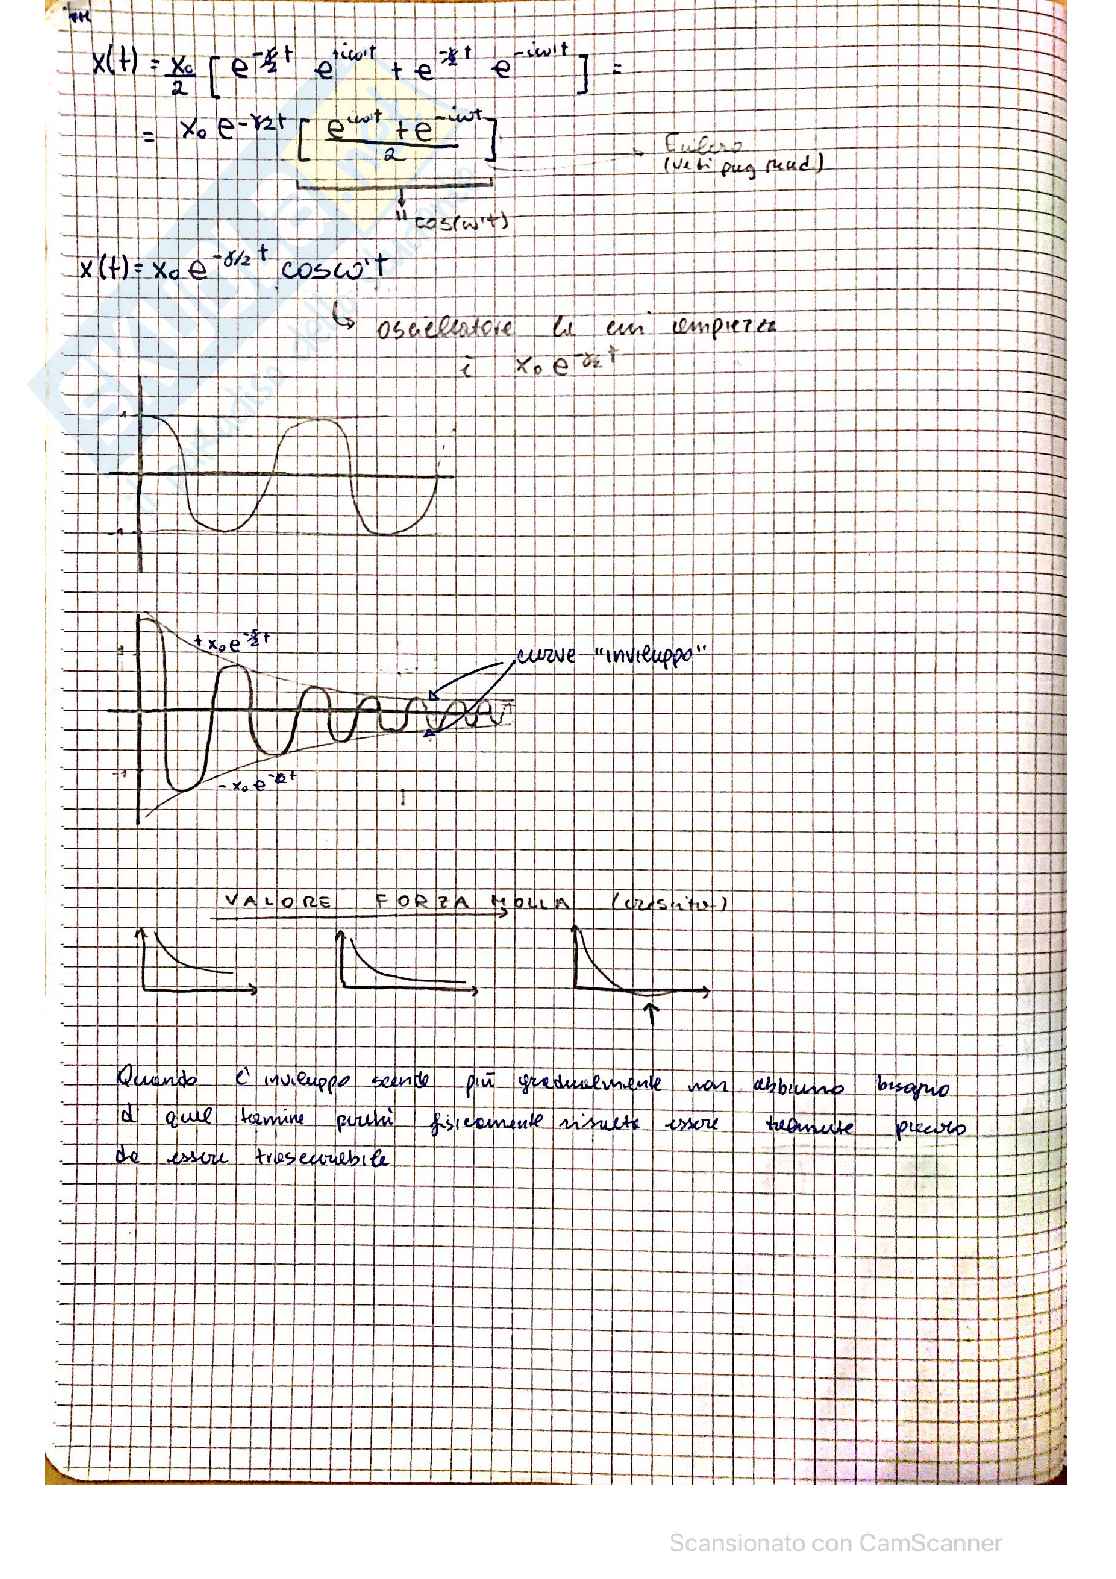 x(t) = x₀/2 [ e^{-γ/2 t} e^{+iω't} + e^{-γ/2 t} e^{-iω't} ] =
= x₀ e^{-γ/2 t} [ (e^{iω't} + e^{-iω't})/2 ]
Eulero
(vedi pag prec)
cos(ω't)
x(t) = x₀ e^{-γ/2 t} cosω't
↳ oscillatore la cui ampiezza
è x₀ e^{-γ/2 t}
1
-1
+x₀ e^{-γ/2 t}
curve "inviluppo"
1
-1
-x₀ e^{-γ/2 t}
VALORE FORZA MOLLA (crescita)
Quando l'inviluppo scende più gradualmente non abbiamo bisogno
di quel termine perché fisicamente risulta essere talmente piccolo
da essere trascurabile
Scansionato con CamScanner